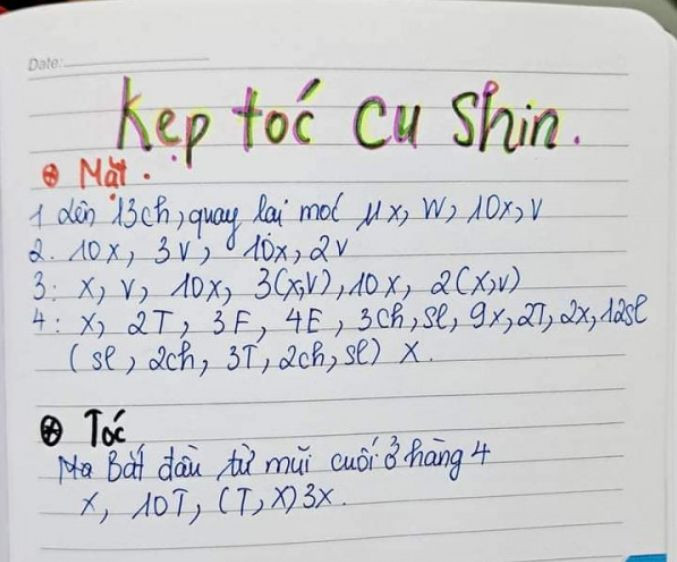 Date:
Kẹp tóc Cu Shin.
Mặt.
1 lên 13ch, quay lại móc 11x, W, 10x, V
2. 10x, 3V, 10x, 2V
3: x, V, 10x, 3(x,V), 10x, 2(x,V)
4: x, 2T, 3F, 4E, 3ch, sl, 9x, 2T, 2x, 12sl
(sl, 2ch, 3T, 2ch, sl) x.
Tóc
Bắt đầu từ mũi cuối ở hàng 4
x, 10T, (T, x) 3x.